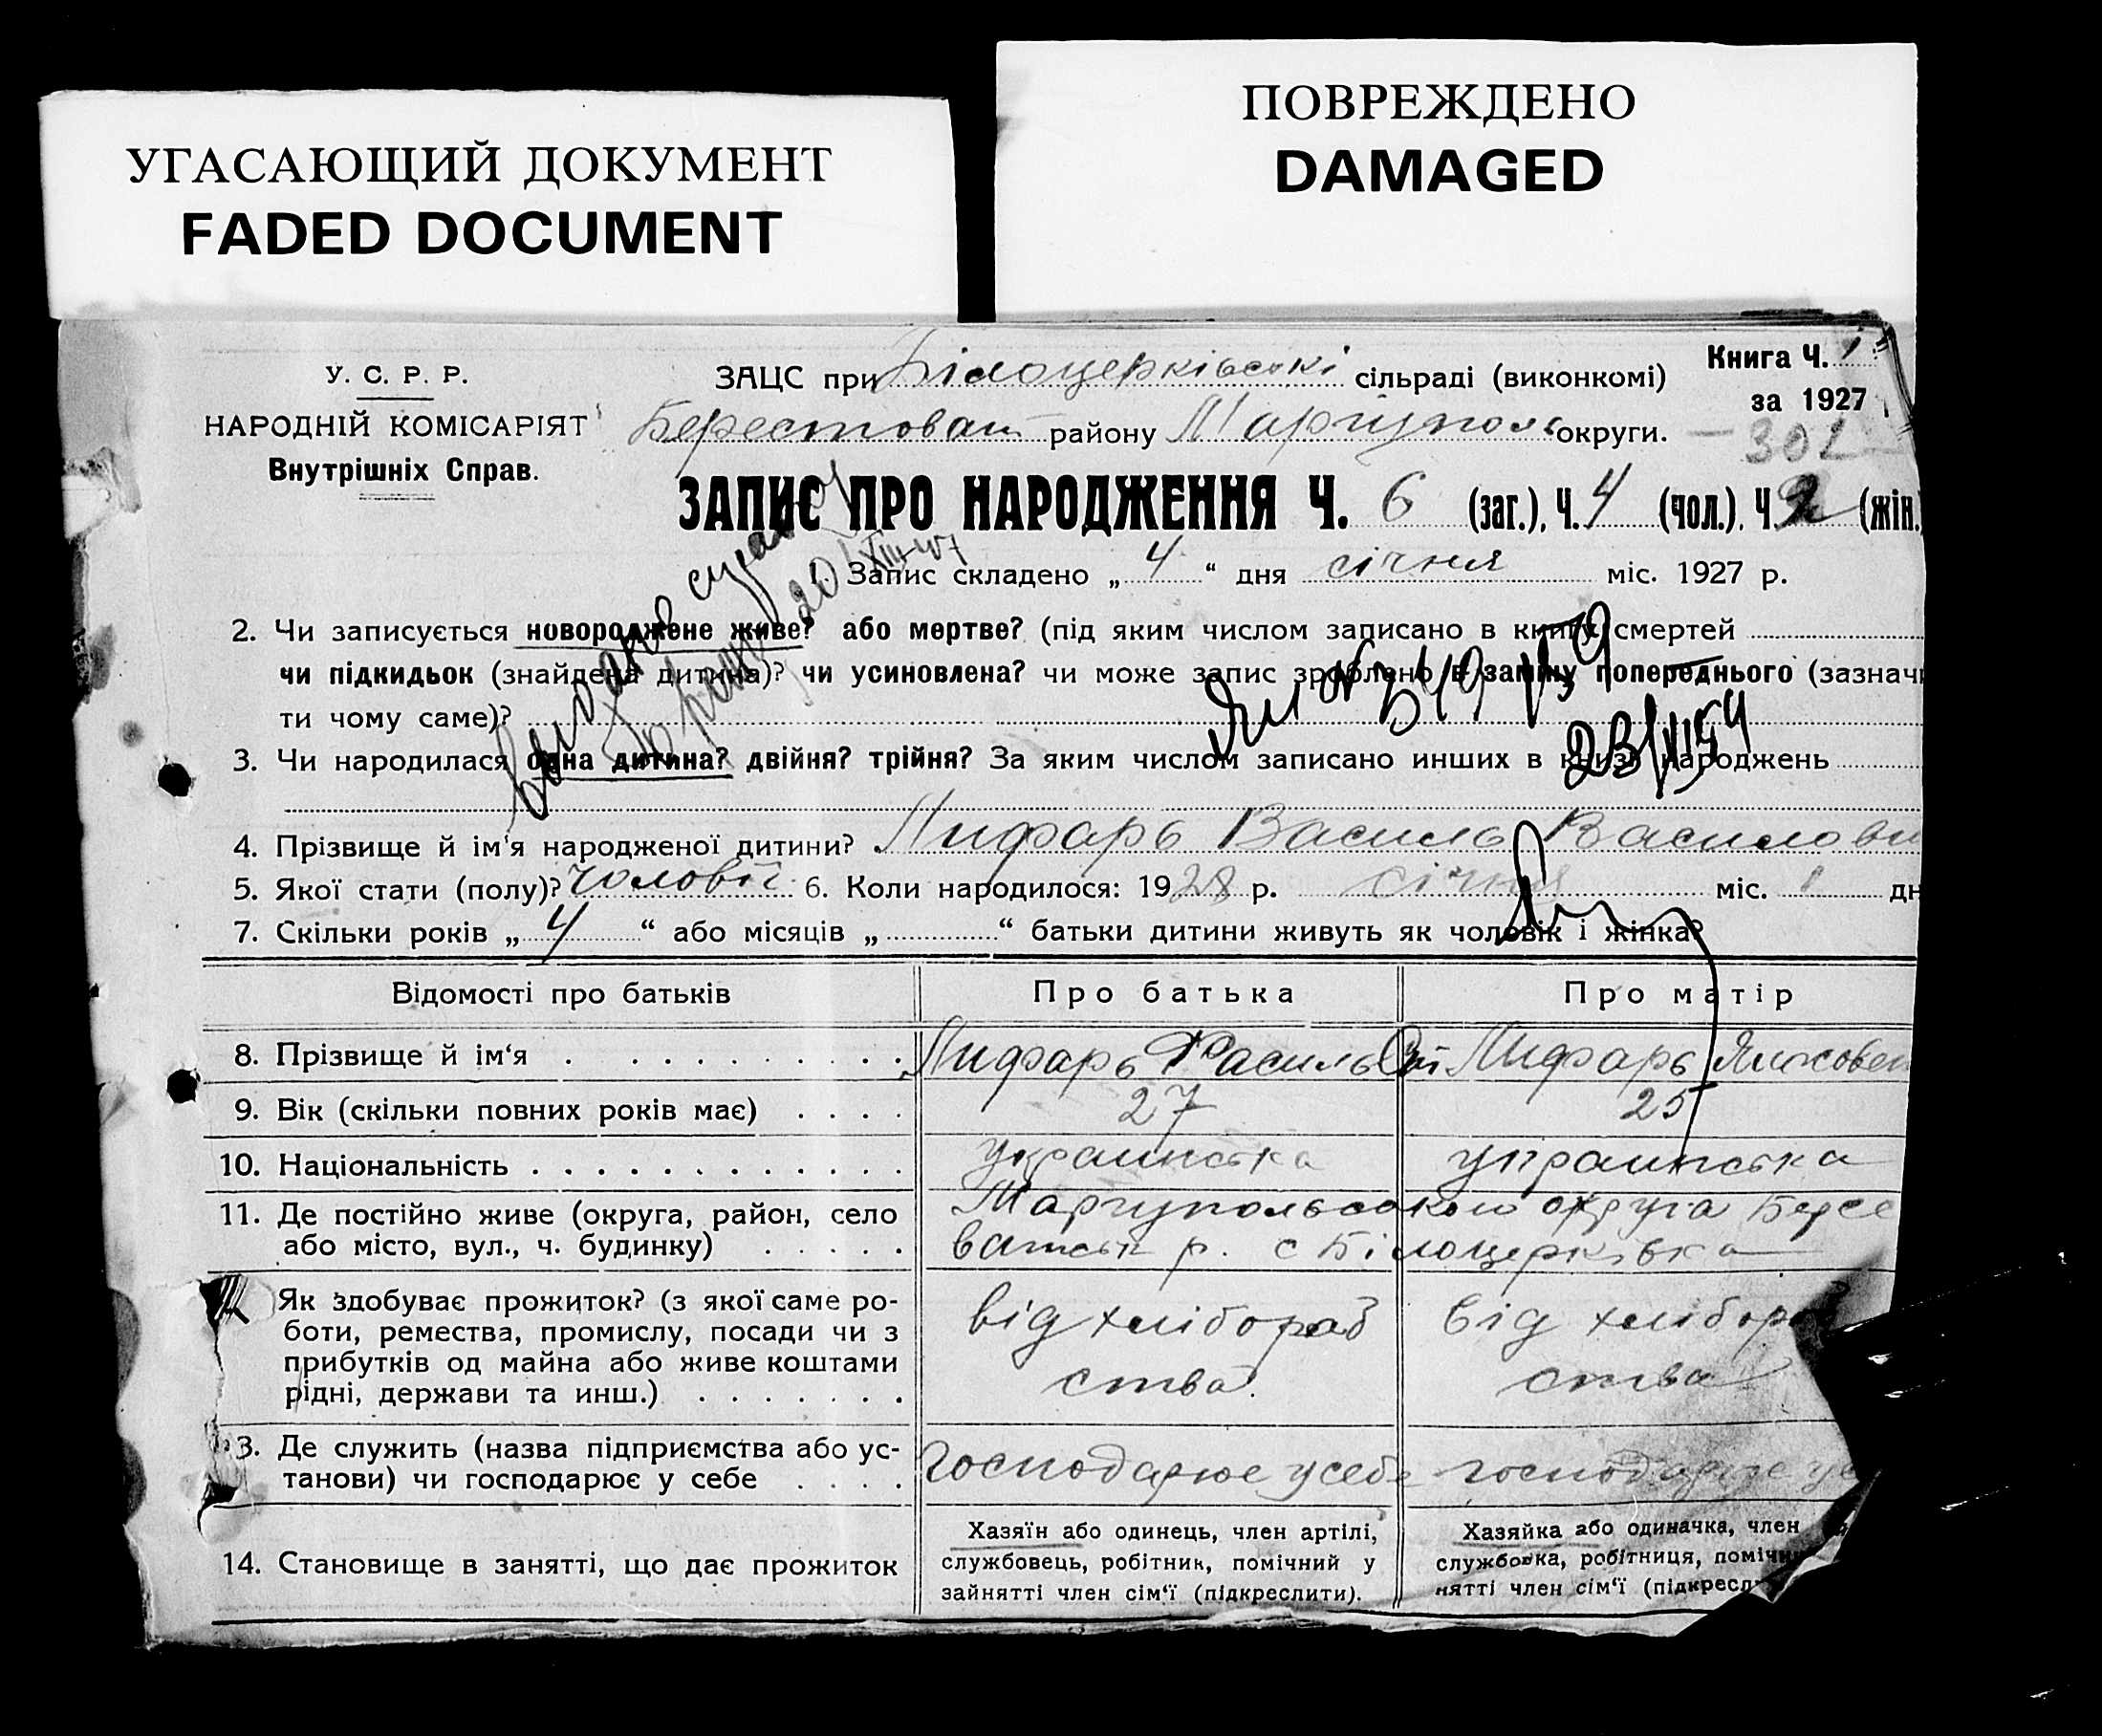 УГАСАЮЩИЙ ДОКУМЕНТ
FADED DOCUMENT
ПОВРЕЖДЕНО
DAMAGED
У. С. Р. Р.
НАРОДНІЙ КОМІСАРІЯТ
Внутрішніх Справ.
ЗАЦС при Білоцерківскі сільраді (виконкомі)
Книга Ч. 1
за 1927
302
Берестоват району Маріуполь округи.
ЗАПИС ПРО НАРОДЖЕННЯ Ч. 6 (заг.), Ч. 4 (чол.), Ч. 2 (жін.
1. Запис складено „ 4 “ дня січня міс. 1927 р.
2. Чи записується новороджене живе? або мертве? (під яким числом записано в книгу смертей
чи підкидьок (знайдена дитина)? чи усиновлена? чи може запис зроблено в заміну попереднього (зазначи
ти чому саме)?
3. Чи народилася одна дитина? двійня? трійня? За яким числом записано инших в книзі народжень
4. Прізвище й ім‘я народженої дитини? Лифарь Василь Василови
5. Якої стати (полу)? чоловіч 6. Коли народилося: 1928 р. січня міс. 1 дн
7. Скільки років „ 4 “ або місяців „ “ батьки дитини живуть як чоловік і жінка?
Відомості про батьків
Про батька
Про матір
8. Прізвище й ім‘я Лифарь Василь Лифарь
9. Вік (скільки повних років має) 27 25
10. Національність украинська украинська
11. Де постійно живе (округа, район, село
або місто, вул., ч. будинку)
Маріупольськои округа Берес
ватськ р. с Білоцерківка
Як здобуває прожиток? (з якої саме ро-
боти, ремества, промислу, посади чи з
прибутків од майна або живе коштами
рідні, держави та инш.)
від хлібораб
ства.
від хлібораб
ства
3. Де служить (назва підприємства або ус-
танови) чи господарює у себе
господарює у себе господарює у се
14. Становище в занятті, що дає прожиток
Хазяїн або одинець, член артілі,
службовець, робітник, помічний у
зайнятті член сім‘ї (підкреслити).
Хазяйка або одиначка, член
службовка, робітниця, поміч
нятті член сім‘ї (підкресл